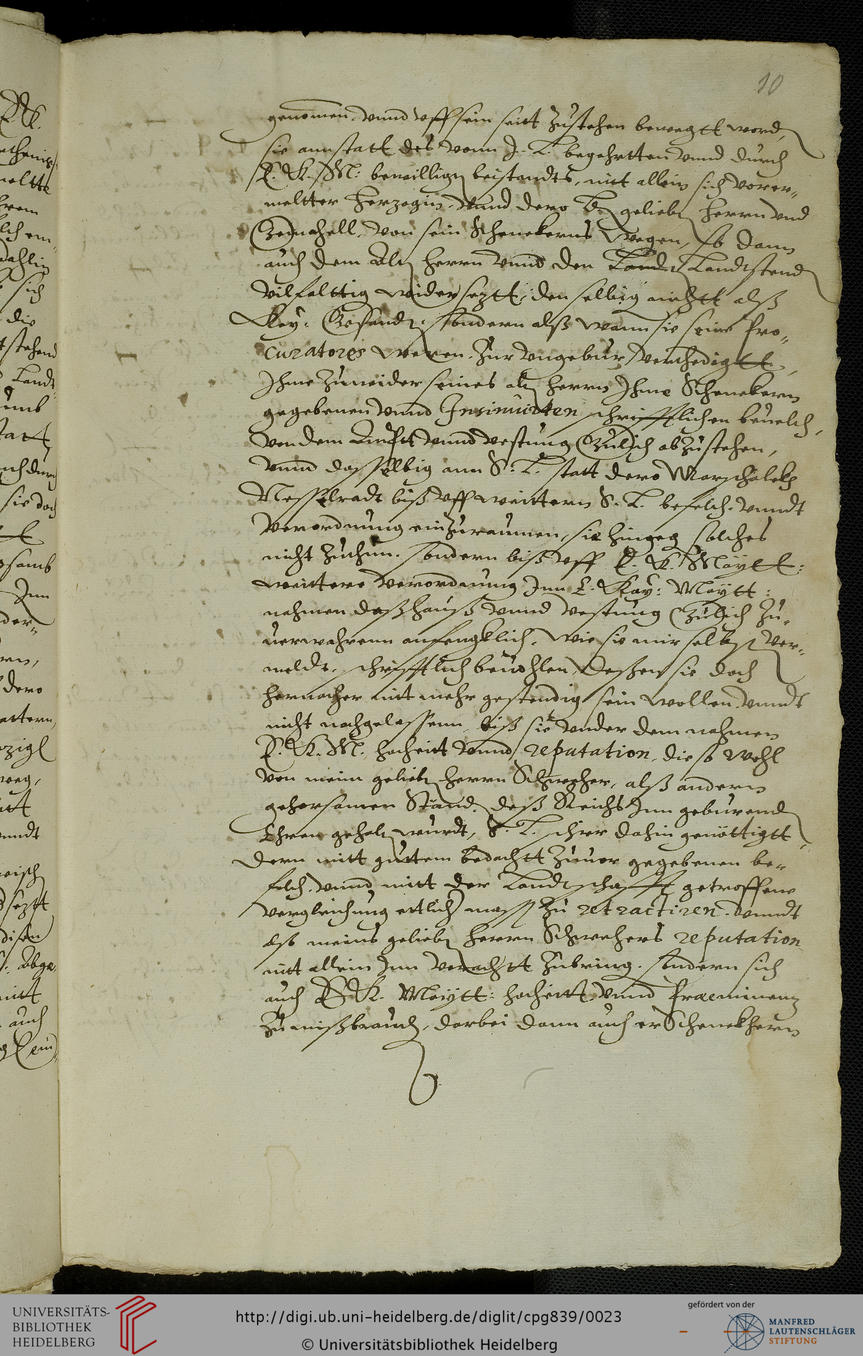 10
genommen, vnnd vff sein seitt zustehen bewegtt word,
sie annstatt des vonn J. L. begehrtten vnnd durch
E. K. M: bewilligen beistandts, nit allein sich vorer-
meltter Herzogin, vnnd dero geliebt Herrn vnd
Gemahell, von sein Schenckerns wegen, so dann
auch dem Alt Herrn vnnd den Landtstend
vilfalttig widersetzt, den selbig nichtt alß
Key: Gesandt, sondern alß wann sie seine Pro-
curatores weren, zur vngebur, verthedigtt,
Ihme zuwider seines alt Herrn Ihme Schenckern
gegebenen vnnd Insinuirten schrifftlichen beuelch,
von dem Ampt vnnd vestung Gülich abzustehen,
vnnd dasselbig ann S: L. statt dero Marschalckh
Nesselradt biß vff weittern S. L. befelch, vnndt
verordnung einzuraumen, sie hingeg solches
nicht zuthun, sondern biß vff E. K. Maytt:
weittere verordnung Inn E. Kay: Maytt:
nahmen daß hauß vnnd vestung Gülich zu-
uerwahrenn anfengklich, wie sie mir selbst ver-
meldt, schrifftlich beuohlen, deßen sie doch
hernacher nitt mehr gestendig sein wollen, vnndt
nicht nachgelassenn, biß sie vnder dem nahmen
E. K. M. hocheit vnnd reputation, die so wohl
von meim geliebt Herrn Schweher, alß andern
gehorsamen Stand, deß Reichs Inn geburend
Ehren gehalt wurdt, S. L. schier dahin genöttigtt,
dern mitt guttem bedachtt zuuor gegebenen be-
felch, vnnd mitt der Landtschafft getroffene
vergleichung ettlich mass zu retractiren, vnndt
also meins geliebt Herrn Schwehers reputation
nit allein Inn verachtt zubring, sondern sich
auch E. K. Maytt: hocheit vnnd Praeminenz
zu mißbrauch, darbei dann auch er Schenckhern
UNIVERSITÄTS-
BIBLIOTHEK
HEIDELBERG
http://digi.ub.uni-heidelberg.de/diglit/cpg839/0023
© Universitätsbibliothek Heidelberg
gefördert von der
MANFRED
LAUTENSCHLÄGER
STIFTUNG